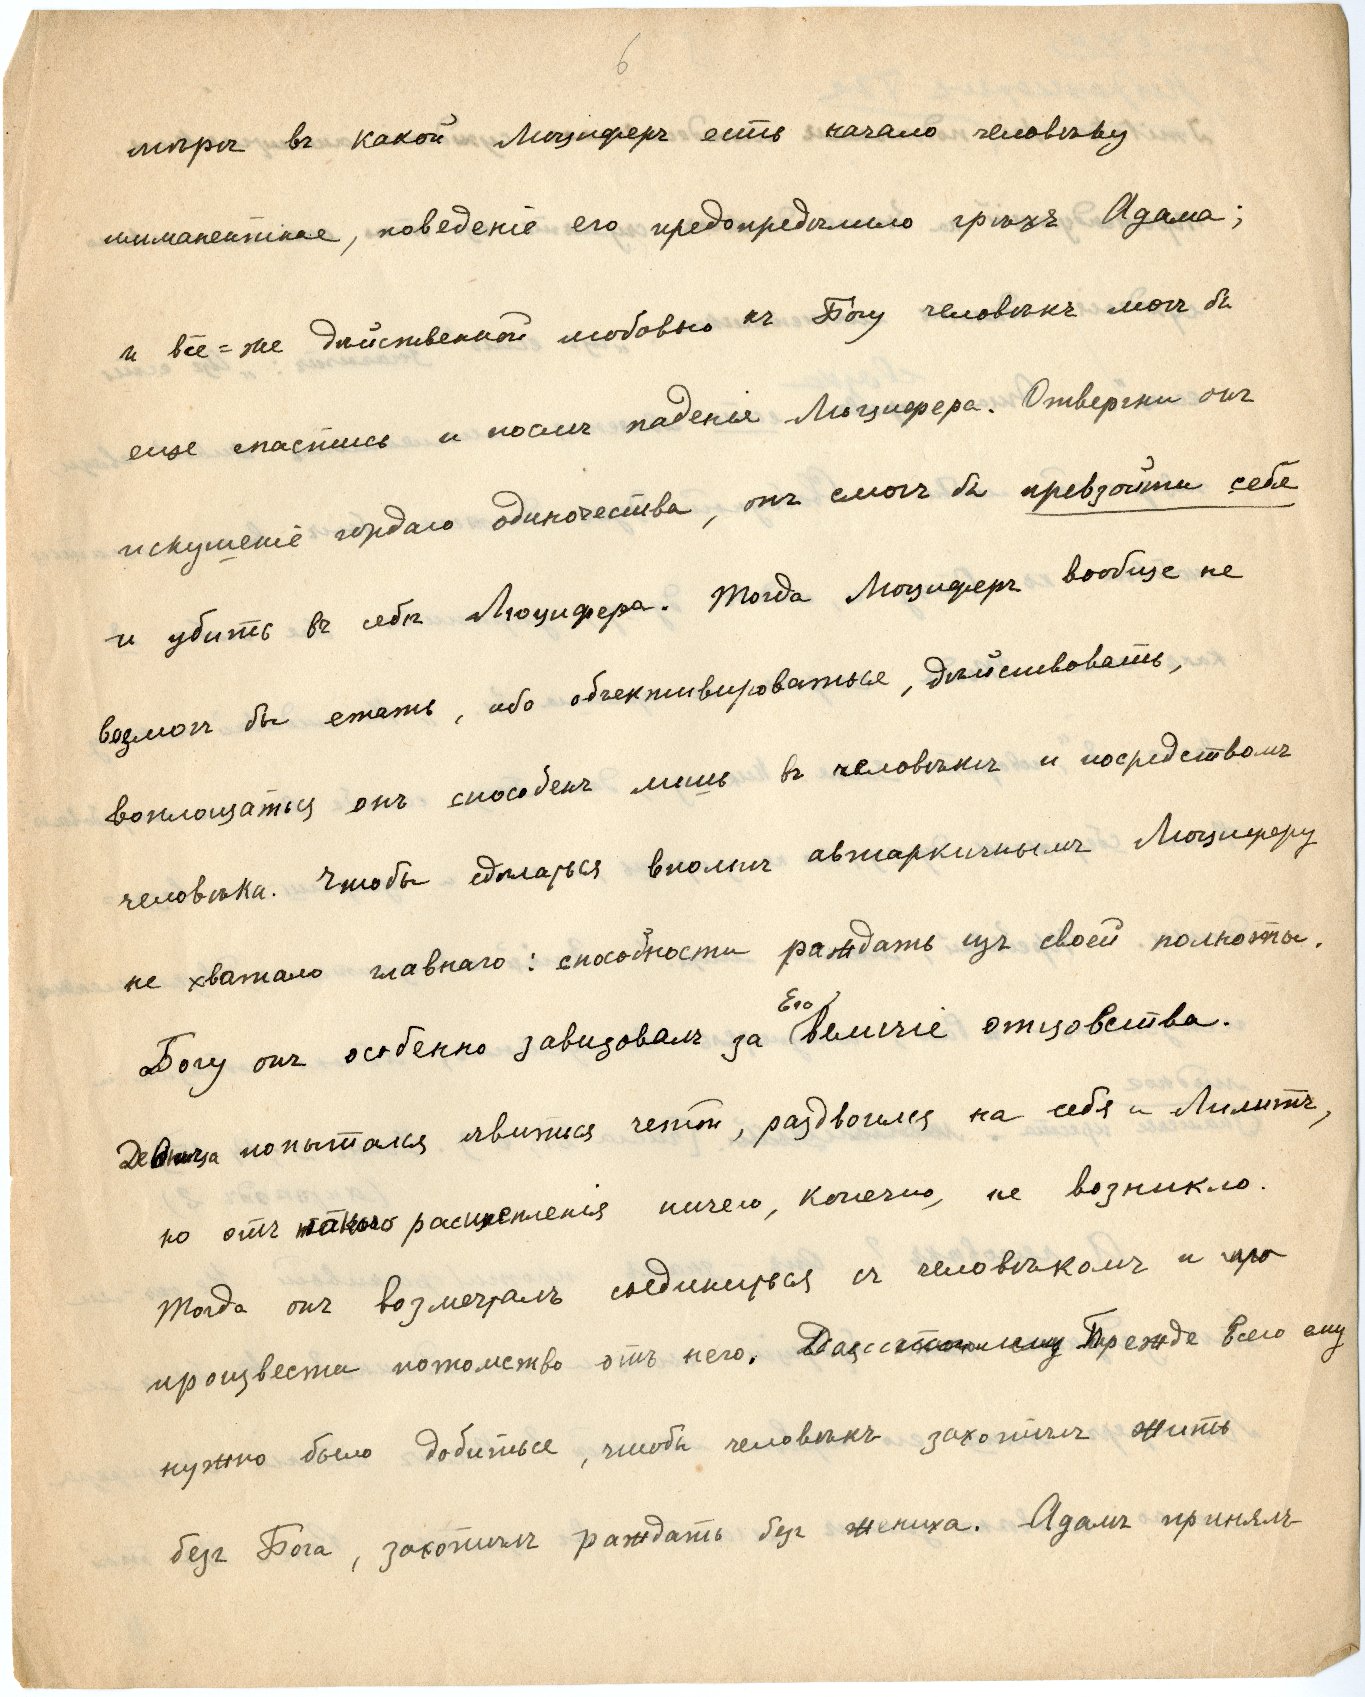 6
мѣрѣ въ какой Люциферъ есть начало человѣку
имманентное, поведеніе его предопредѣлило грѣхъ Адама;
и все=же дѣйственной любовью къ Богу человѣкъ могъ бы
еще спастись и послѣ паденія Люцифера. Отвергни онъ
искушеніе гордаго одиночества, онъ смогъ бы превзойти себя
и убить въ себѣ Люцифера. Тогда Люциферъ вообще не
возмогъ бы стать, ибо объективироваться, дѣйствовать,
воплощаться онъ способенъ лишь въ человѣкѣ и посредствомъ
человѣка. Чтобы сдѣлаться вполнѣ автаркичнымъ Люциферу
не хватало главнаго: способности раждать изъ своей полноты.
Богу онъ особенно завидовалъ за Его величіе отцовства.
Денница попытался явиться четой, раздвоился на себя и Лилитъ,
но отъ такого расщепленія ничего, конечно, не возникло.
Тогда онъ возмечталъ соединиться съ человѣкомъ и про
произвести потомство отъ него. Прежде всего ему
нужно было добиться, чтобы человѣкъ захотѣлъ жить
безъ Бога, захотѣлъ раждать безъ жениха. Адамъ принялъ